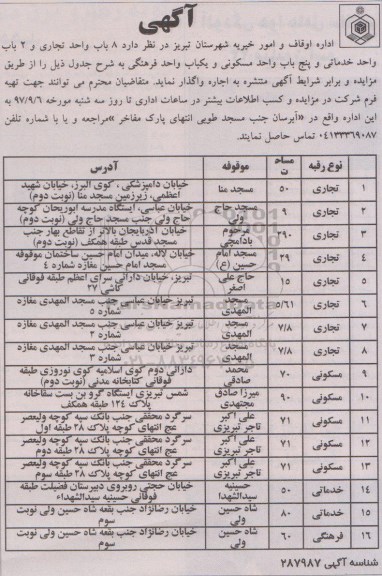 آگهی
اداره اوقاف و امور خیریه شهرستان تبریز در نظر دارد ۸ باب واحد تجاری و ۲ باب
واحد خدماتی و پنج باب واحد مسکونی و یکباب واحد فرهنگی به شرح جدول ذیل را از طریق
مزایده و برابر شرایط آگهی منتشره به اجاره واگذار نماید. متقاضیان محترم می توانند جهت تهیه
فرم شرکت در مزایده و کسب اطلاعات بیشتر در ساعات اداری تا روز سه شنبه مورخه ۹۷/۹/۶ به
این اداره واقع در «آبرسان جنب مسجد طوبی انتهای پارک مفاخر »مراجعه و یا با شماره تلفن
۰۴۱۳۳۳۶۹۰۸۷ تماس حاصل نمایند.
نوع رقبه مساحت موقوفه آدرس
۱ تجاری ۵۰ مسجد منا خیابان دامپزشکی ، کوی البرز، خیابان شهید اعظمی، زیرزمین مسجد منا (نوبت دوم)
۲ تجاری ۹ مسجد حاج ولی خیابان عباسی، ایستگاه مدرسه ابوریحان کوچه حاج ولی جنب مسجد حاج ولی (نوبت دوم)
۳ تجاری ۳۹۰ مرحوم بادامچی خیابان آذربایجان بالاتر از تقاطع بهار جنب مسجد قدس طبقه همکف (نوبت دوم)
۴ تجاری ۲۹ مسجد امام حسین (ع) خیابان لاله، میدان امام حسین ساختمان موقوفه مسجد امام حسین مغازه شماره ۴
۵ تجاری ۱۵ حاج علی اصغر تبریز، خیابان دارائی سرای اعظم طبقه فوقانی پلاک ۲۷
۶ تجاری ۵/۶۱ مسجد المهدی تبریز خیابان عباسی جنب مسجد المهدی مغازه شماره ۵
۷ تجاری ۷/۸ مسجد المهدی تبریز خیابان عباسی جنب مسجد المهدی مغازه شماره ۴
۸ تجاری ۷/۸ مسجد المهدی تبریز خیابان عباسی جنب مسجد المهدی مغازه شماره ۳
۹ مسکونی ۷۰ محمد صادقی دارائی دوم کوی اسلامیه کوی نوروزی طبقه فوقانی کتابخانه مدنی (نوبت دوم)
۱۰ مسکونی ۹۰ میرزا صادق مجتهدی شمس تبریزی ایستگاه گرو بن بست سقاخانه پلاک ۱۲۴ طبقه همکف
۱۱ مسکونی ۷۱ علی اکبر تاجر تبریزی سرگرد محققی جنب بانک سپه کوچه ولیعصر عج انتهای کوچه پلاک ۲۸ طبقه اول
۱۲ مسکونی ۷۱ علی اکبر تاجر تبریزی سرگرد محققی جنب بانک سپه کوچه ولیعصر عج انتهای کوچه پلاک ۲۸ طبقه دوم
۱۳ مسکونی ۷۱ علی اکبر تاجر تبریزی سرگرد محققی جنب بانک سپه کوچه ولیعصر عج انتهای کوچه پلاک ۲۸ طبقه سوم
۱۴ خدماتی ۵۰ حسینیه سیدالشهدا خیابان حجتی روبروی دبیرستان فضیلت طبقه فوقانی حسینیه سیدالشهداء
۱۵ خدماتی ۸۰ شاه حسین ولی خیابان رضانژاد جنب بقعه شاه حسین ولی نوبت سوم
۱۶ فرهنگی ۶۰ شاه حسین ولی خیابان رضانژاد جنب بقعه شاه حسین ولی نوبت سوم
شناسه آگهی ۲۸۷۹۸۷